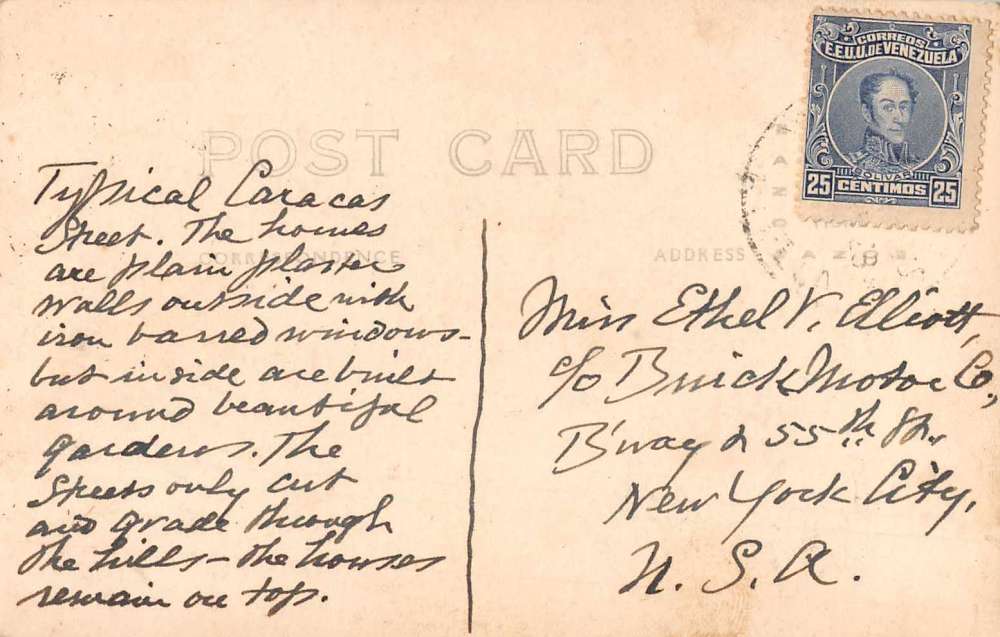 CORREOS
E.E.U.U. DE VENEZUELA
BOLIVAR
25 CENTIMOS 25
POST CARD
CORRESPONDENCE
ADDRESS
Typical Caracas
Street. The homes
are plain plaster
walls outside with
iron barred windows-
but inside are built
around beautiful
gardens. The
streets only cut
and grade through
the hills - the houses
remain on top.
Miss Ethel V. Elliott,
c/o Buick Motor Co,
B'way & 55th St.,
New York City,
U. S. A.